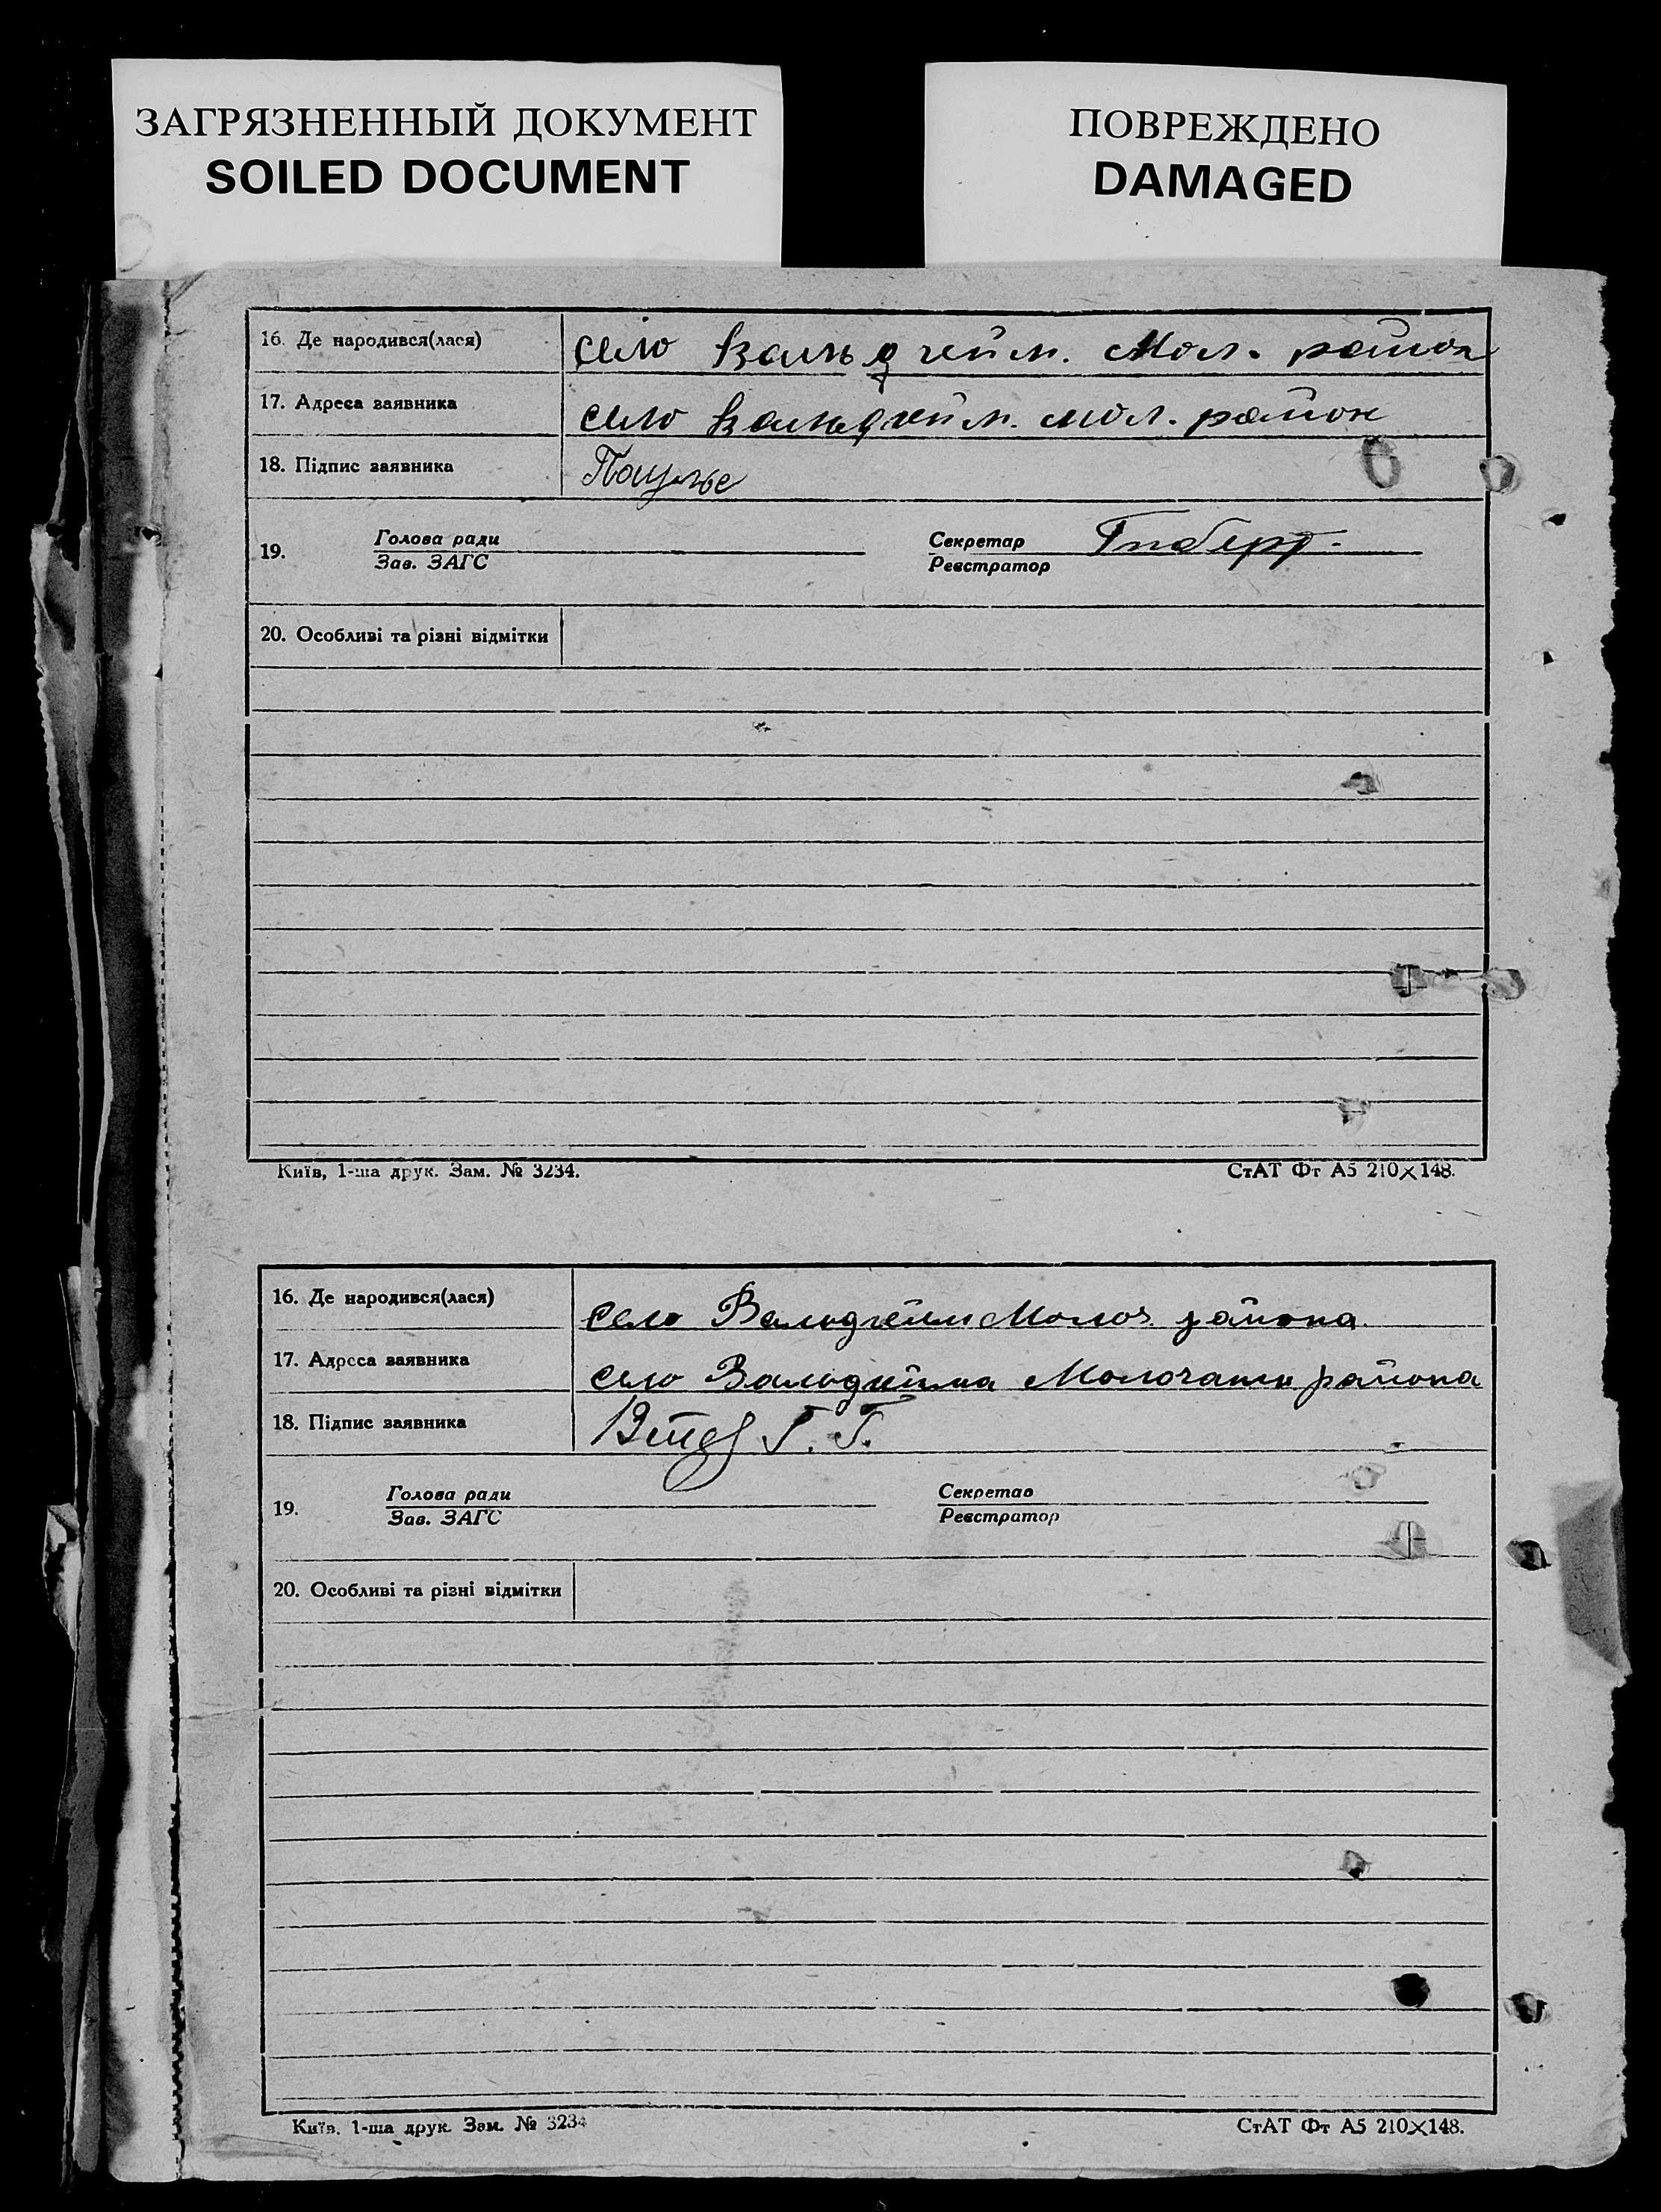 ЗАГРЯЗНЕННЫЙ ДОКУМЕНТ
SOILED DOCUMENT
ПОВРЕЖДЕНО
DAMAGED
16. Де народився(лася) село Вальдгейм. Мол. район
17. Адреса заявника село Вальдгейм. мол. район
18. Підпис заявника
19. Голова ради
Зав. ЗАГС
Секретар
Реєстратор
20. Особливі та різні відмітки
Київ, 1-ша друк. Зам. № 3234.
СтАТ Фт А5 210×148.
16. Де народився(лася) село Вальдгейм Молоч. района
17. Адреса заявника село Вальдгейма района
18. Підпис заявника Г. Г.
19. Голова ради
Зав. ЗАГС
Секретар
Реєстратор
20. Особливі та різні відмітки
Київ, 1-ша друк. Зам. № 3234
СтАТ Фт А5 210×148.